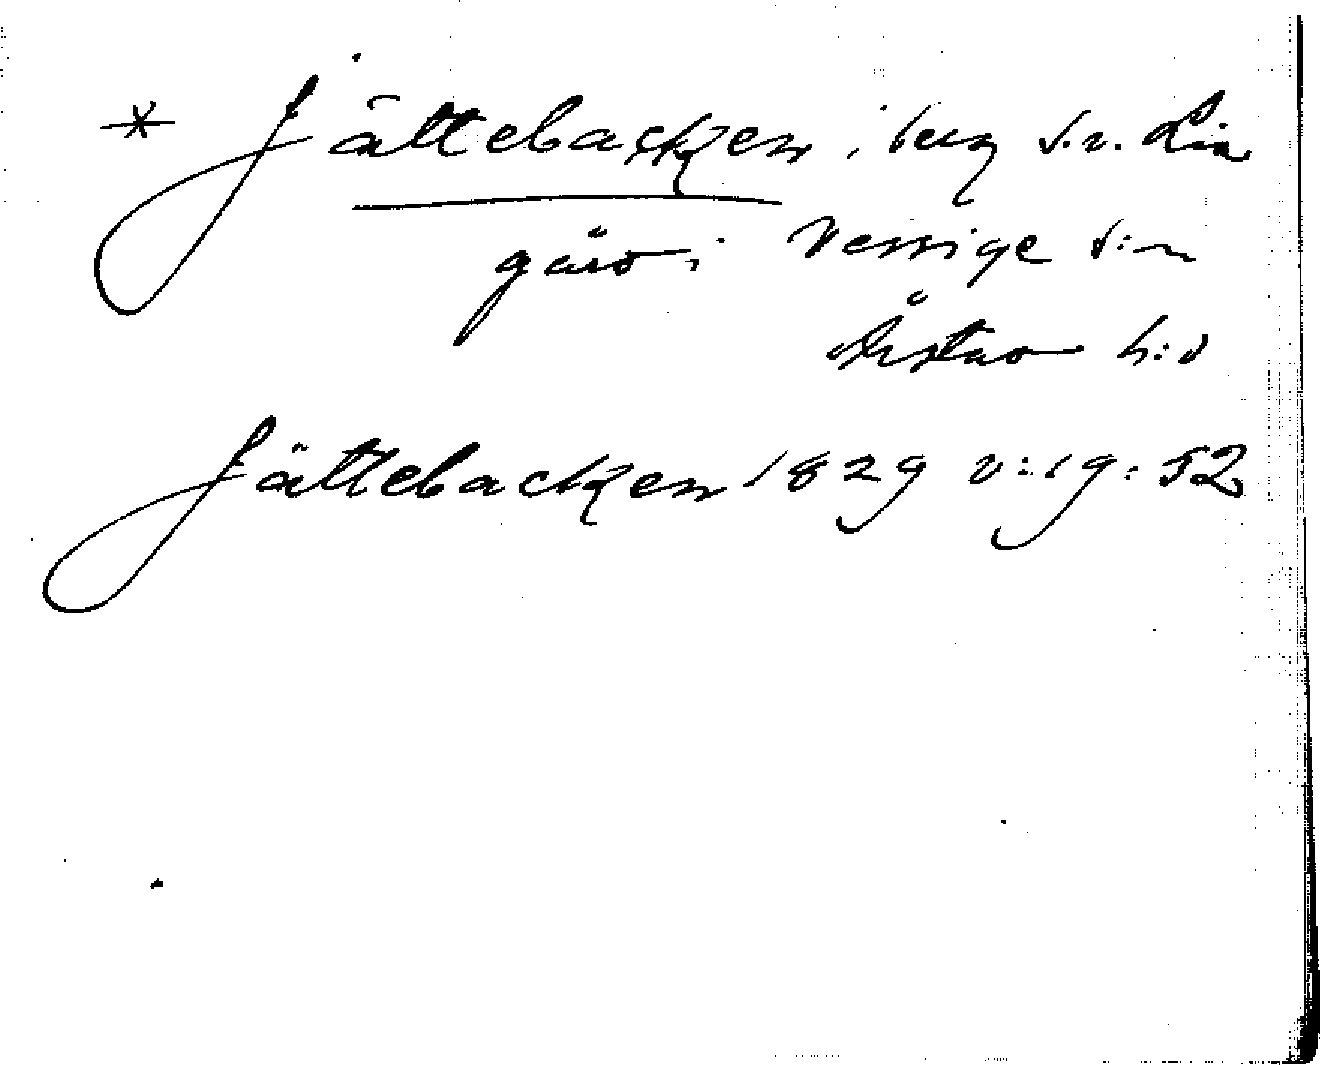 * Jättebacken, berg s.v. Lia
gård i Vessige s:n
Årstad h:d
Jättebacken 1829 V:19:52